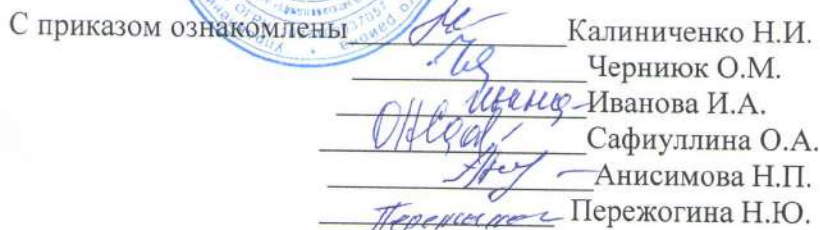 С приказом ознакомлены Калиниченко Н.И.
Черниюк О.М.
Иванова И.А.
Сафиуллина О.А.
Анисимова Н.П.
Пережогина Н.Ю.